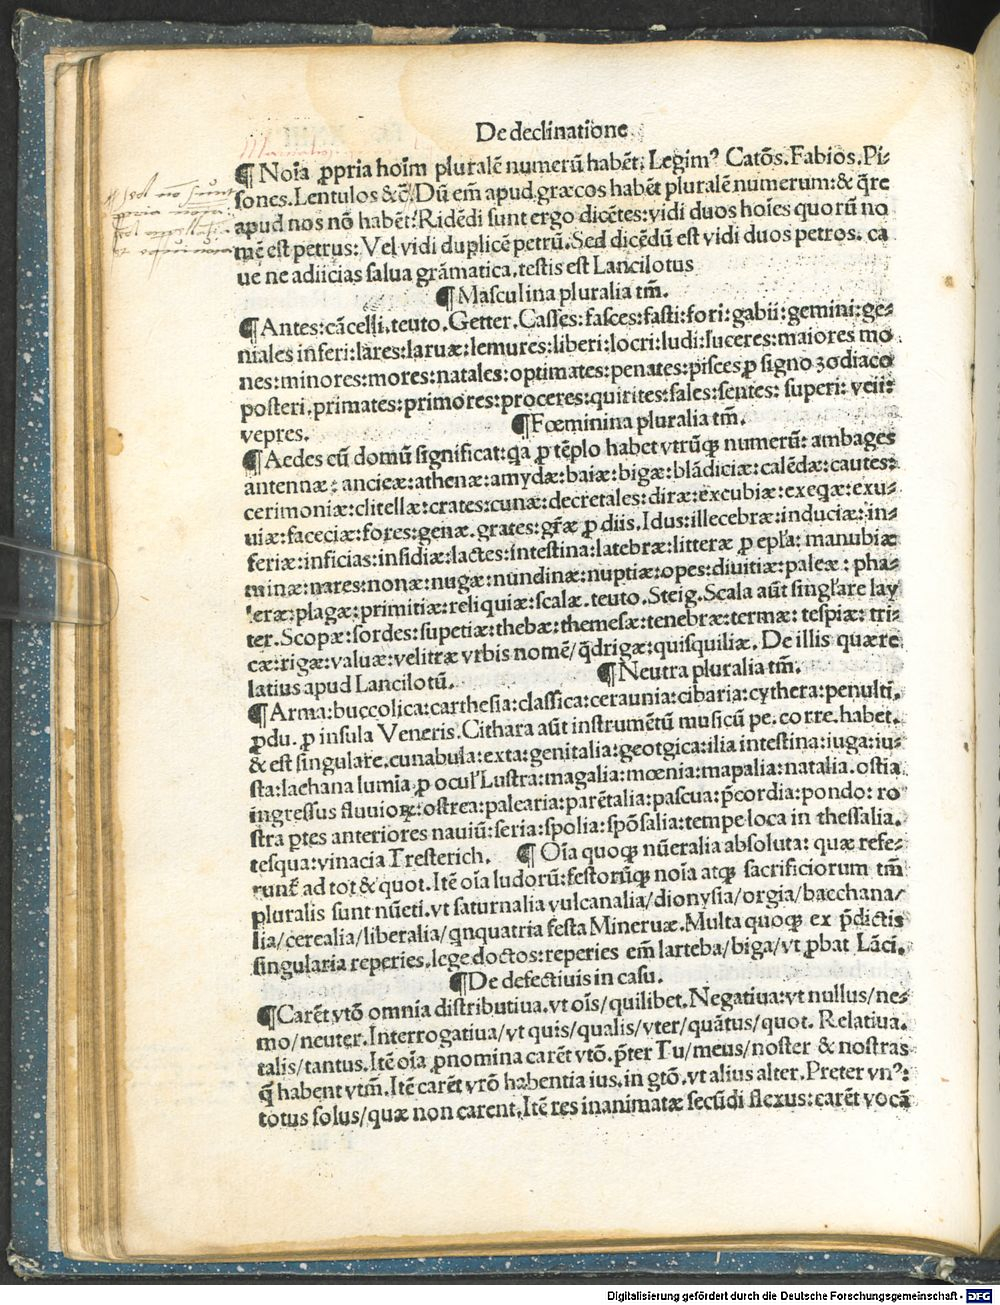 De declinatione
¶ Noīa ꝓpria hoīm pluralē numerū habēt. Legim⁹ Catōs. Fabios. Pi-
sones. Lentulos &c̄. Dū em̄ apud græcos habēt pluralē numerum: & q̄re
apud nos nō habēt? Ridēdi sunt ergo dicētes: vidi duos hoīes quorū no
mē est petrus: Vel vidi duplicē petrū. Sed dicēdū est vidi duos petros. ca
ue ne adiicias salua grāmatica, testis est Lancilotus
¶ Masculina pluralia tm̄.
¶ Antes: cācelli, teuto. Getter. Casses: fasces: fasti: fori: gabii: gemini: ge-
niales inferi: lares: laruæ: lemures: liberi: locri: ludi: luceres: maiores mo
nes: minores: mores: natales: optimates: penates: pisces ꝓ signo zodiaco
posteri, primates: primores: proceres: quirites: sales: sentes: superi: veii:
vepres.
¶ Fœminina pluralia tm̄.
¶ Aedes cū domū significat: q̄a ꝓ tēplo habet vtrūqꝫ numerū: ambages
antennæ: ancieæ: athenæ: amydæ: baiæ: bigæ: blādiciæ: calēdæ: cautes:
cerimoniæ: clitellæ: crates: cunæ: decretales: diræ: excubiæ: exeq̄æ: exu-
uiæ: faceciæ: fores: genæ. grates: gr̄æ ꝓ diis. Idus: illecebræ: induciæ: in-
feriæ: inficias: insidiæ: lactes: intestina: latebræ: litteræ ꝓ epl'a: manubiæ
minæ: nares: nonæ: nugæ: nundinæ: nuptiæ: opes: diuitiæ: paleæ: pha-
leræ: plagæ: primitiæ: reliquiæ: scalæ. teuto. Steig. Scala aūt singl'are lay
ter. Scopæ: sordes: supetiæ: thebæ: themesæ: tenebræ: termæ: tespiæ: tri-
cæ: rigæ: valuæ: velitræ vrbis nomē/ q̄drigæ: quisquiliæ. De illis quære
latius apud Lancilotū.
¶ Neutra pluralia tm̄.
¶ Arma: buccolica: carthesia: classica: ceraunia: cibaria: cythera: penultī.
ꝓdu. ꝓ insula Veneris. Cithara aūt instrumētū musicū pe. corre. habet.
& est singulare. cunabula: exta: genitalia: geotgica: ilia intestina: iuga: iu-
sta: lachana lumīa ꝓ ocul' Lustra: magalia: mœnia: mapalia: natalia. ostia
ingressus fluuioꝝ: ostrea: palearia: parētalia: pascua: p̄cordia: pondo: ro
stra ꝑtes anteriores nauiū: seria: spolia: spōsalia: tempe loca in thessalia.
tesqua: vinacia Tresterich.
¶ Oīa quoqꝫ nūeralia absoluta: quæ refe-
runt̄ ad tot & quot. Itē oīa ludorū: festorūqꝫ noīa atqꝫ sacrificiorum tm̄
pluralis sunt nūeti. vt saturnalia vulcanalia/ dionysia/ orgia/ bacchana/
lia/ cerealia/ liberalia/ qnquatria festa Mineruæ. Multa quoqꝫ ex p̄dictis
singularia reperies. lege doctos: reperies em̄ larteba/ biga/ vt ꝓbat Lāci.
¶ De defectiuis in casu.
¶ Carēt vtō omnia distributiua. vt oīs/ quilibet. Negatiua: vt nullus/ ne-
mo/ neuter. Interrogatiua/ vt quis/ qualis/ vter/ quātus/ quot. Relatiua.
talis/ tantus. Itē oīa ꝓnomina carēt vtō. p̄ter Tu/ meus/ noster & nostras
q̄ habent vtm̄. Itē carēt vtō habentia ius. in gtō. vt alius alter. Preter vn⁹:
totus solus/ quæ non carent. Itē res inanimatæ secūdi flexus: carēt vocā
Digitalisierung gefördert durch die Deutsche Forschungsgemeinschaft - DFG